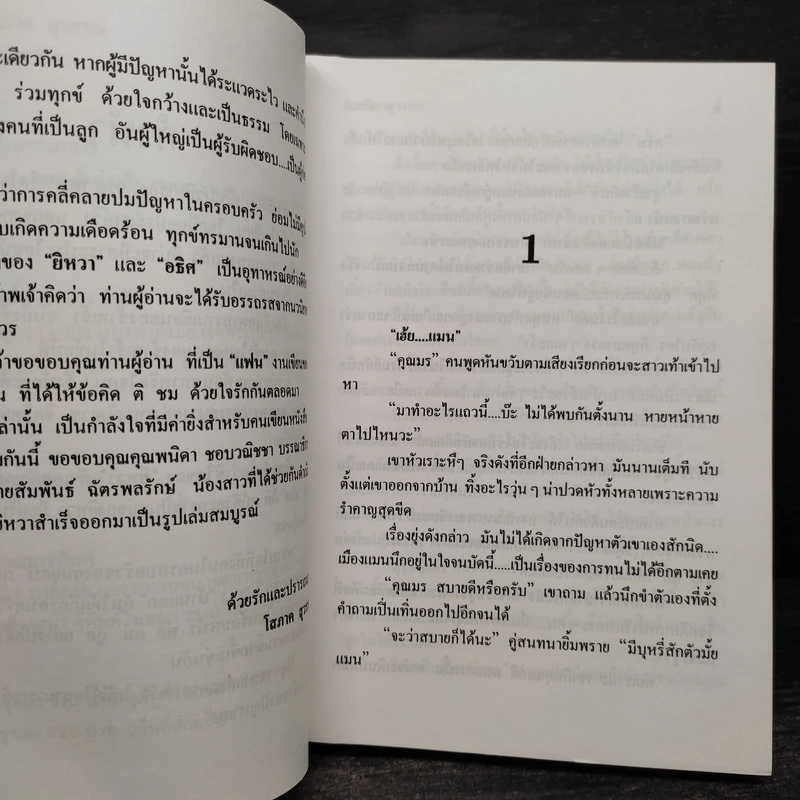 ะเดียวกัน หากผู้มีปัญหานั้นได้ระแวดระไว และคำนึ
ร่วมทุกข์ ด้วยใจกว้างและเป็นธรรม โดยเฉพาะ
งคนที่เป็นลูก อันผู้ใหญ่เป็นผู้รับผิดชอบ....เป็นผู้
ว่าการคลี่คลายปมปัญหาในครอบครัว ย่อมไม่มี
บเกิดความเดือดร้อน ทุกข์ทรมานจนเกินไปนัก
ของ “ยิหวา” และ “อธิศ” เป็นอุทาหรณ์อย่างดี
าพเจ้าคิดว่า ท่านผู้อ่านจะได้รับอรรถรสจากนวนิยา
วร
จ้าขอขอบคุณท่านผู้อ่าน ที่เป็น “แฟน” งานเขียนขอ
น ที่ได้ให้ข้อคิด ติ ชม ด้วยใจรักกันตลอดมา
ล่านั้น เป็นกำลังใจที่มีค่ายิ่งสำหรับคนเขียนหนังสื
ยกันนี้ ขอขอบคุณคุณพนิดา ชอบวณิชชา บรรณาธิก
ายสัมพันธ์ ฉัตรพลรักษ์ น้องสาวที่ได้ช่วยกัน
ยิหวาสำเร็จออกมาเป็นรูปเล่มสมบูรณ์
ด้วยรักและปรารถ
โสภาค สุว
1
“เฮ้ย....แมน”
“คุณมร” คนพูดหันขวับตามเสียงเรียกก่อนจะสาวเท้าเข้าไป
หา
“มาทำอะไรแถวนี้....บ๊ะ ไม่ได้พบกันตั้งนาน หายหน้าหาย
ตาไปไหนวะ”
เขาหัวเราะหึๆ จริงดังที่อีกฝ่ายกล่าวหา มันนานเต็มที นับ
ตั้งแต่เขาออกจากบ้าน ทิ้งอะไรวุ่นๆ น่าปวดหัวทั้งหลายเพราะความ
รำคาญสุดขีด
เรื่องยุ่งดังกล่าว มันไม่ได้เกิดจากปัญหาตัวเขาเองสักนิด....
เมืองแมนนึกอยู่ในใจจนบัดนี้.....เป็นเรื่องของการทนไม่ได้อีกตามเคย
“คุณมร สบายดีหรือครับ” เขาถาม แล้วนึกขำตัวเองที่ตั้ง
คำถามเป็นเทิ่นออกไปอีกจนได้
“จะว่าสบายก็ได้นะ” คู่สนทนายิ้มพราย “มีบุหรี่สักตัวมั้ย
แมน”